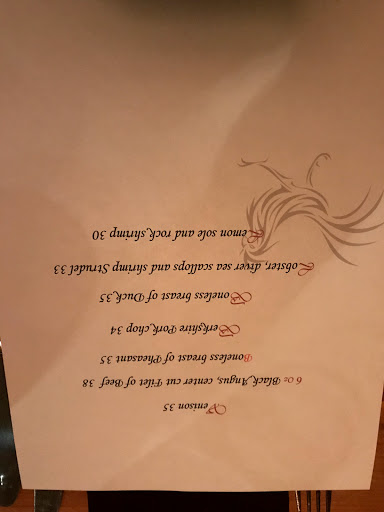 Lemon sole and rock shrimp 30
Lobster, diver sea scallops and shrimp Strudel 33
Boneless breast of Duck 35
Berkshire Pork chop 34
Boneless breast of Pheasant 35
6 oz Black Angus, center cut Filet of Beef 38
Venison 35